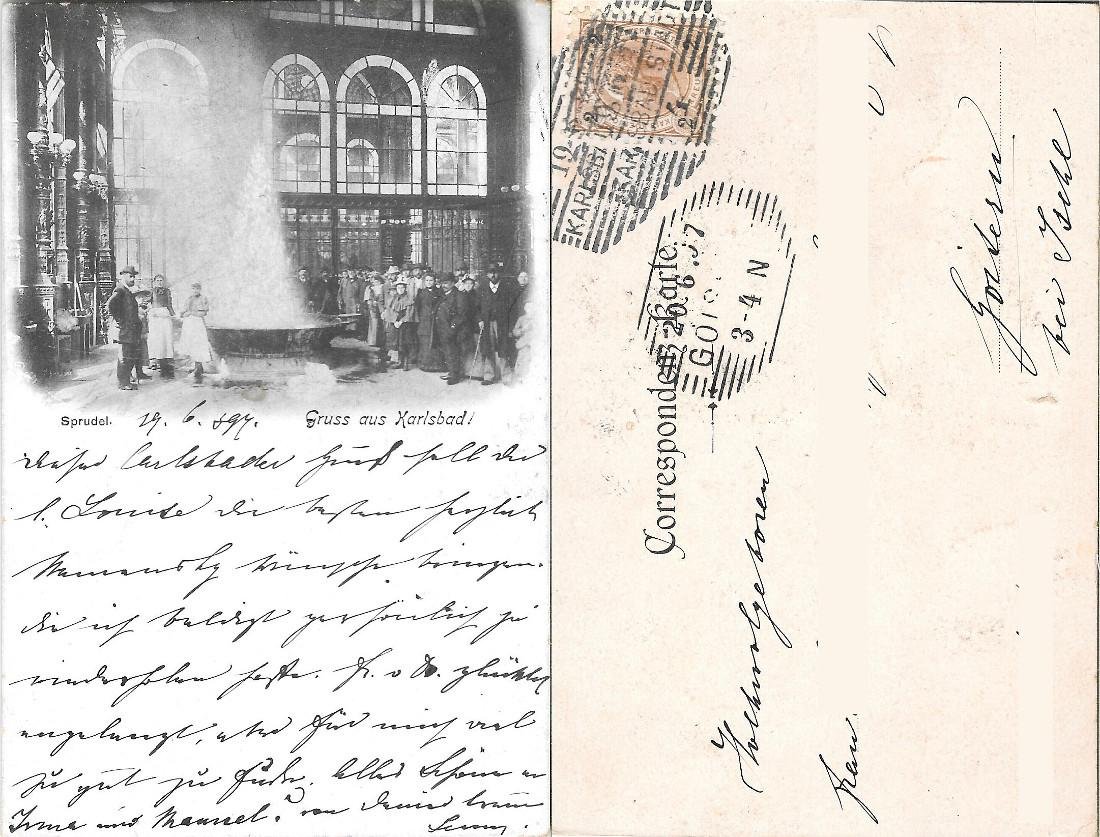 Sprudel. 19. 6. 897. Gruss aus Karlsbad!
Dieser Carlsbader Gruß soll die
l. Louise die besten herzlich
Namenstg Wünsche bringen
die ich baldigst persönlich zu
wiederholen hoffe. Fr. v. glücklich
angelangt, aber für mich viel
zu gut zu Fuße. Alles Schöne an
Irma und von Deiner treuen
Correspondenz-Karte.
KARLSBAD
KARLSBAD
20.6.97
GOIS
3-4 N
Hochwolgeboren
Frau
Goisern
bei Ischl